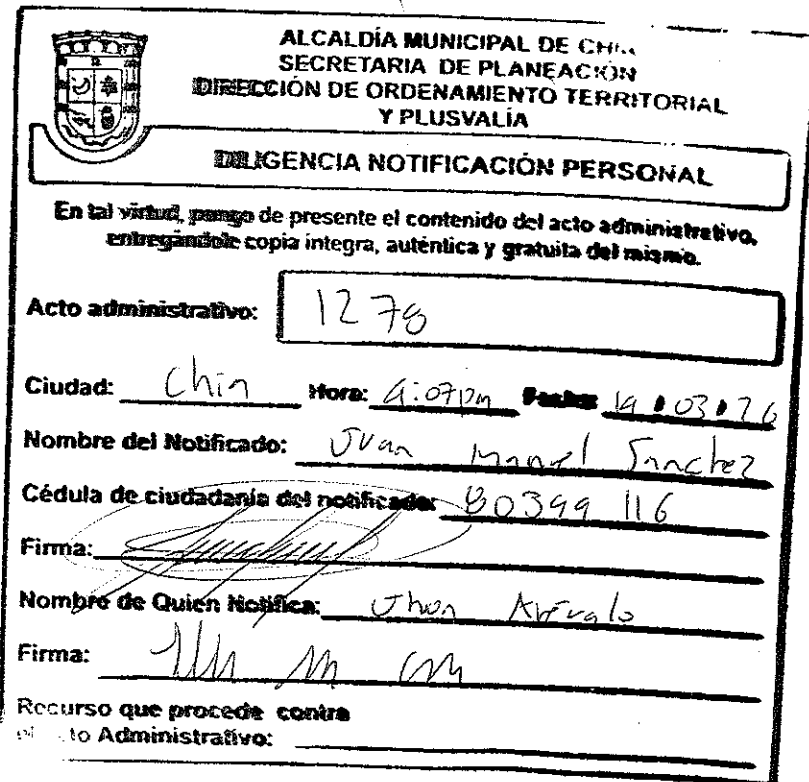 ALCALDÍA MUNICIPAL DE
SECRETARIA DE PLANEACIÓN
DIRECCIÓN DE ORDENAMIENTO TERRITORIAL
Y PLUSVALÍA
DILIGENCIA NOTIFICACIÓN PERSONAL
En tal virtud, pongo de presente el contenido del acto administrativo,
entregándole copia integra, auténtica y gratuita del mismo.
Acto administrativo: 1278
Ciudad: Chia Hora: 4:07pm Fecha: 19 03 26
Nombre del Notificado: Juan Manuel Sanchez
Cédula de ciudadanía del notificado: 80399 116
Firma:
Nombre de Quien Notifica: Jhon Arévalo
Firma:
Recurso que procede contra
Administrativo: